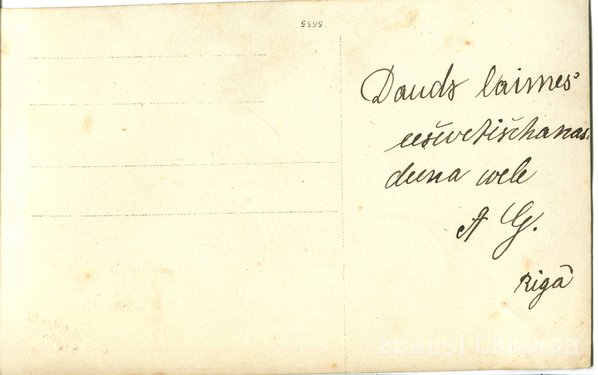 5555
Dauds laimes
eešwetischanas
deena wele
A G.
Rigā